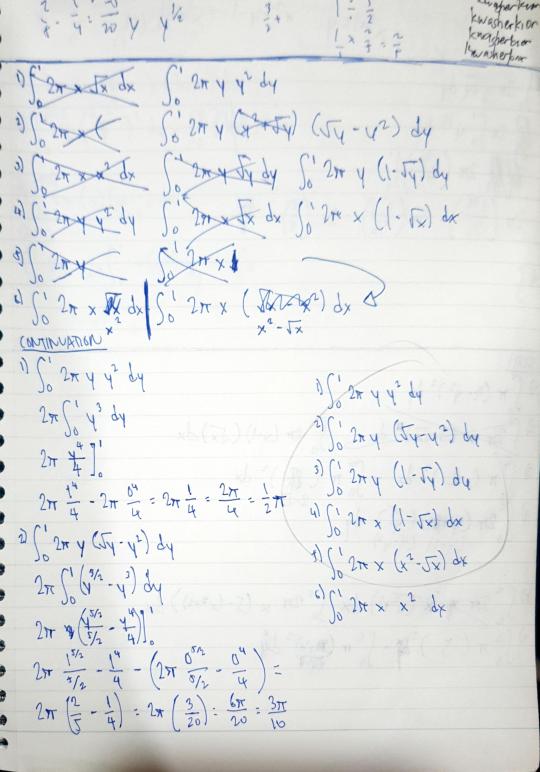 2/5 - 1/4 = 8/20 y y^1/2
1/4 × 2/5 = 2/5
kwasherkior
kwasherkior
1) ∫₀¹ 2π x √x dx ∫₀¹ 2π y y² dy
2) ∫₀¹ 2π x ( ∫₀¹ 2π y (y²+√y) (√y - y²) dy
3) ∫₀¹ 2π x x² dx ∫₀¹ 2π y √y dy ∫₀¹ 2π y (1-√y) dy
4) ∫₀¹ 2π y y² dy ∫₀¹ 2π x √x dx ∫₀¹ 2π x (1-√x) dx
5) ∫₀¹ 2π y ∫₀¹ 2π x
6) ∫₀¹ 2π x √x dx ∫₀¹ 2π x (√x - x²) dx
x² x² - √x
CONTINUATION
1) ∫₀¹ 2π y y² dy
2π ∫₀¹ y³ dy
2π y⁴/4 ]₀¹
2π 1⁴/4 - 2π 0⁴/4 = 2π 1/4 = 2π/4 = 1/2 π
2) ∫₀¹ 2π y (√y - y²) dy
2π ∫₀¹ (y^3/2 - y³) dy
2π (y^5/2/5/2 - y⁴/4)]₀¹
2π 1^5/2/5/2 - 1⁴/4 - (2π 0^5/2/5/2 - 0⁴/4) =
2π (2/5 - 1/4) = 2π (3/20) = 6π/20 = 3π/10
1) ∫₀¹ 2π y y² dy
2) ∫₀¹ 2π y (√y - y²) dy
3) ∫₀¹ 2π y (1-√y) dy
4) ∫₀¹ 2π x (1-√x) dx
5) ∫₀¹ 2π x (x²-√x) dx
6) ∫₀¹ 2π x x² dx